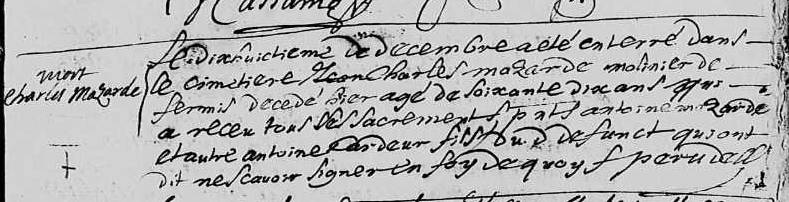 Le dixhuictieme de decembre a eté enterré dans
mort
Charles Mazarde
le cimetiere Jean Charles mazarde molinier de
fermis decedé hier agé de soixante dix ans qui
a receu tous les sacrements pnts antoine mazarde
et autre antoine fils dud defunct qui ont
dit ne scavoir signer en foy de quoy